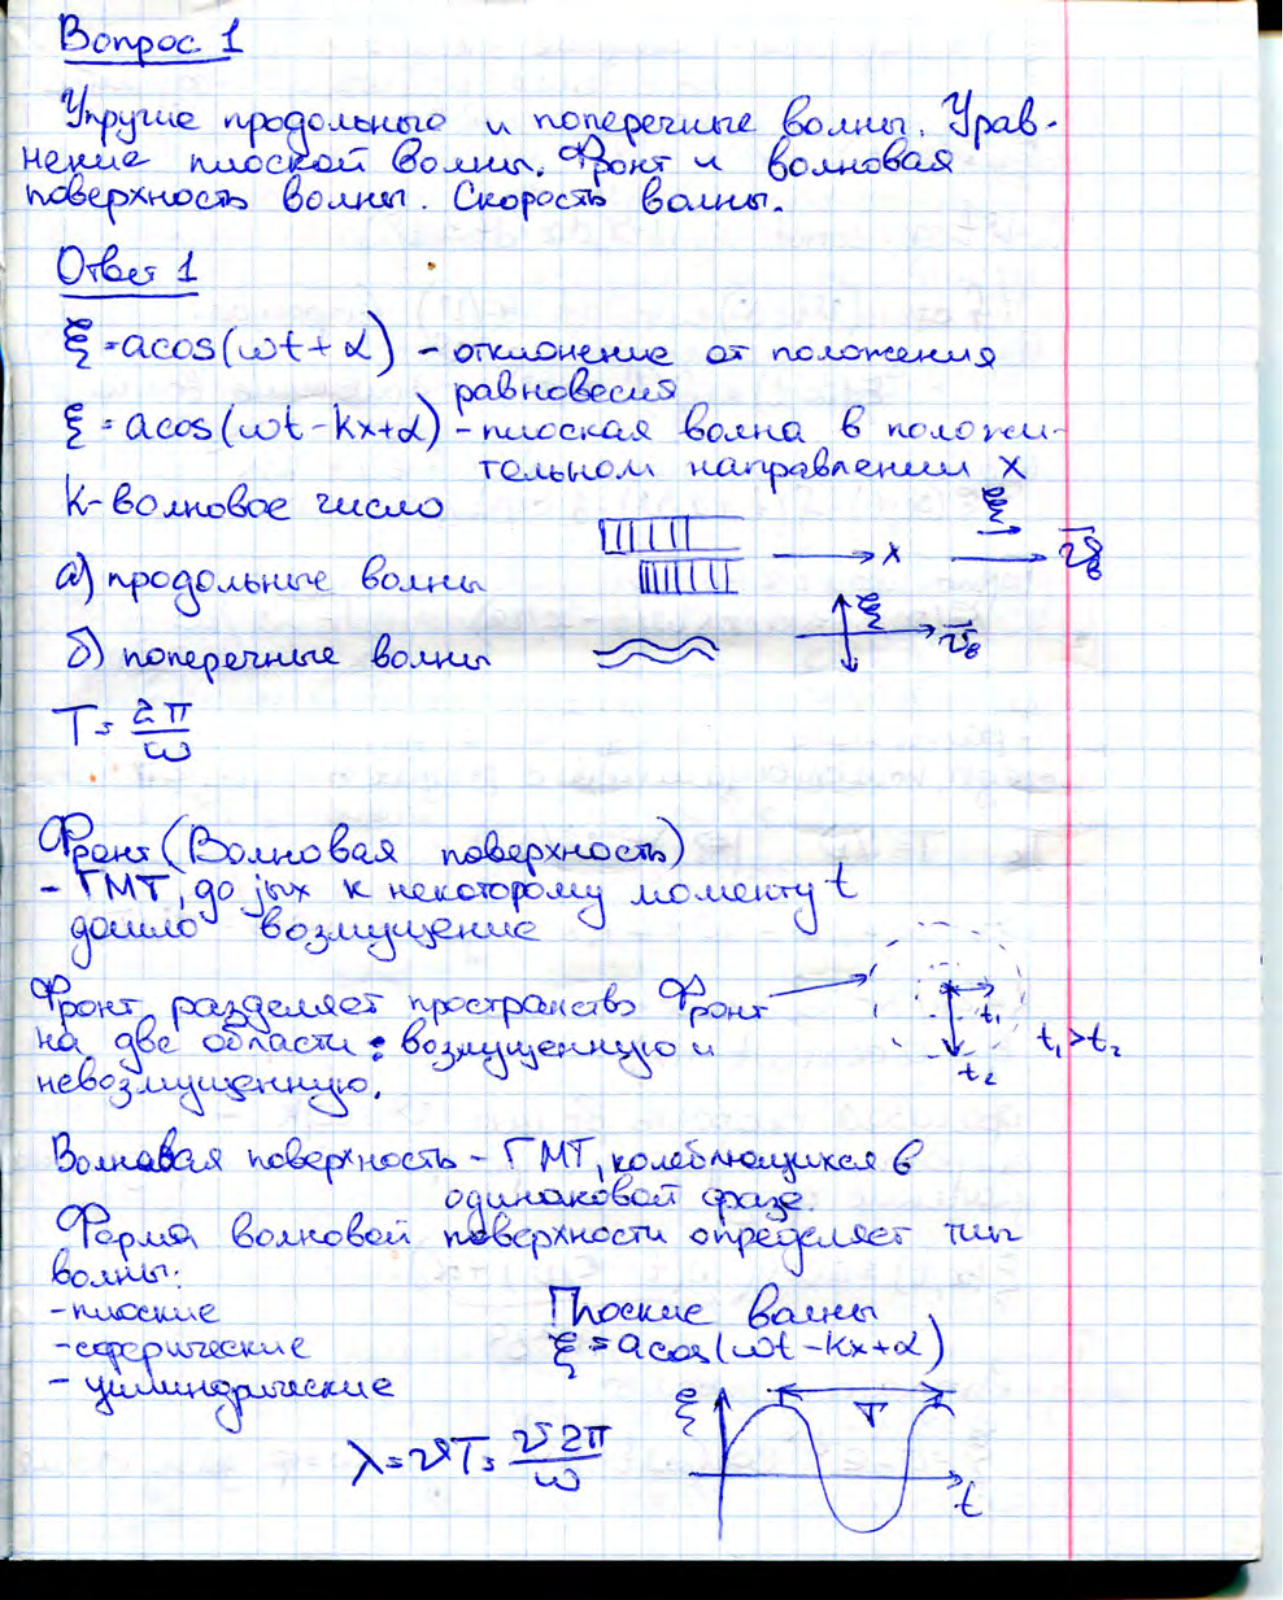 Вопрос 1
Упругие продольные и поперечные волны. Урав-
нение плоской волны. Фронт и волновая
поверхность волны. Скорость волны.
Ответ 1
ξ = a cos(ωt + α) - отклонение от положения
равновесия
ξ = a cos(ωt - kx + α) - плоская волна в положи-
тельном направлении x
k - волновое число
а) продольные волны
x
ξ
v̄в
б) поперечные волны
ξ
v̄в
T = 2π/ω
Фронт (Волновая поверхность)
- ГМТ, до которых к некоторому моменту t
дошло возмущение
Фронт разделяет пространство
на две области: возмущенную и
невозмущенную.
Фронт
t₁
t₂
t₁ > t₂
Волновая поверхность - ГМТ, колеблющихся в
одинаковой фазе.
Форма волновой поверхности определяет тип
волны:
- плоские
- сферические
- цилиндрические
Плоские волны
ξ = a cos(ωt - kx + α)
λ = vT = v2π/ω
ξ
T
t